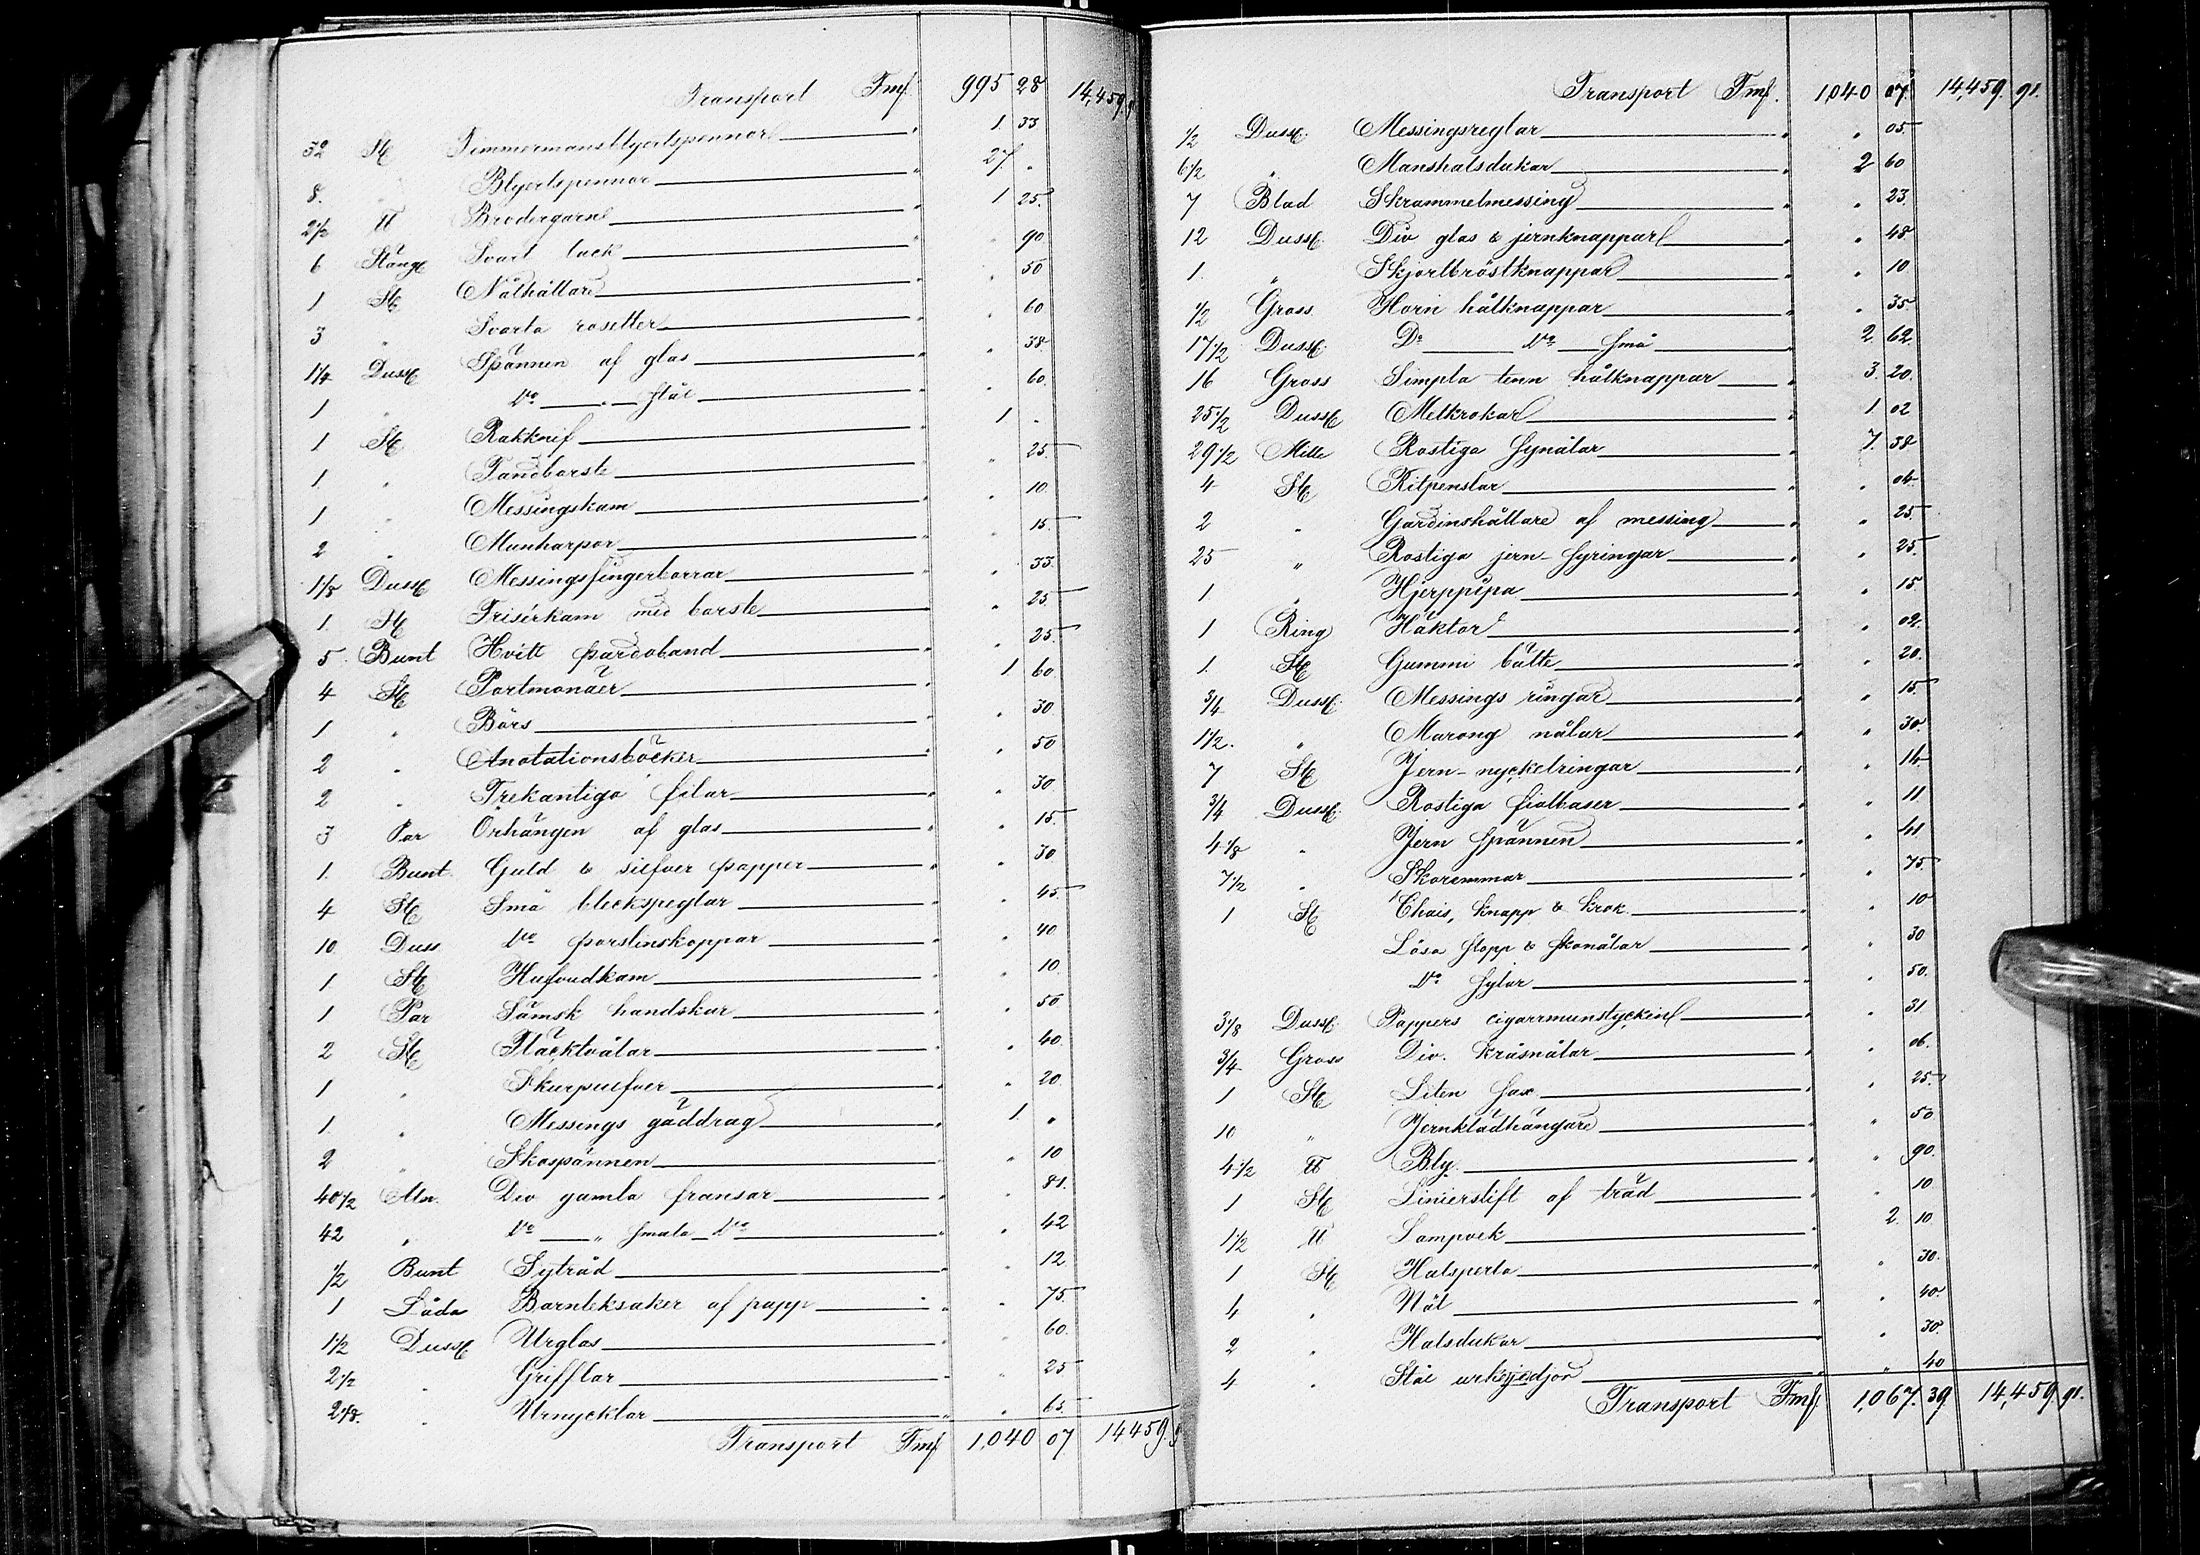 Transport Fmf. 995 28 14,459.
32 St Timmermansblyertspennor " 1. 33
8. " Blyertspennor " 27. "
2 1/2 ℔ Brodergarn " 1 25.
6 Stäng Svart lack " " 90
1 St Nålhållare " " 50
3 " Svarta rosetter " " 60
1 1/4 Duss Spännen af glas " " 38
1 " Do " stål " " 60.
1 St Rakknif " 1 "
1. " Tandborste " " 25.
1 " Messingskam " " 10.
2 " Munharpor " " 15.
1 1/3 Duss Messingsfingerborrar " " 33.
1. St Frisérkam med borste " " 25.
5. Bunt Hvitt pardoband " " 25.
4 St Portmonäer " 1 60
1 " Börs " " 30
2 " Anotationsböcker " " 50
2 " Trekantiga filar " " 30
3 Par Örhängen af glas " " 15.
1. Bunt. Guld & silfver papper " " 30
4 St Små bleckspeglar " " 45.
10. Duss Do porslinskoppar " " 40
1 St Hufvudkam " " 10
1 Par Sämsk handskar " " 50
2 St Fläcktvålar " " 40.
1 " Skurpulfver " " 20
1. " Messings gäddrag " 1. "
2 " Skospännen " " 10
40 1/2 Aln. Div gamla fransar " " 81.
42 " Do " smala Do " " 42
1/2 Bunt Sytråd " " 12
1 Låda Barnleksaker af papp " " 75.
1 1/2 Duss Urglas " " 60.
2 1/2 " Grifflar " " 25
2 1/8. " Urnycklar " " 65.
Transport Fmf. 1,040 07 14459.
Transport Fmf. 1,040 07. 14,459. 91.
1/2 Duss. Messingsreglar " " 05.
6 1/2 " Manshalsdukar " 2 60
7 Blad Skrammelmessing " " 23.
12 Duss. Div glas & jernknappar " " 48
1. " Skjortbröstknappar " " 10
1/2 Gross Horn hålknappar " " 35
17 1/2 Duss. Do Do små " 2 62
16 Gross Simpla tenn hålknappar " 3. 20.
25 1/2 Duss Metkrokar " 1 02
29 1/2 Mille Rostiga synålar " 7. 38
4 St Ritpenslar " " 04
2 " Gardinshållare af messing " " 25.
25 " Rostiga jern-syringar " " 25
1 " Hjerppipa " " 15
1 Ring Häktor " " 02.
1. St Gummi bälte " " 20.
3/4 Duss. Messings ringar " " 15
1 1/2. " Marong nålar " " 30.
7 St Jern-nyckelringar " " 14
3/4 Duss. Rostiga fiolbaser " " 11
4 1/8 " Jern spännen " " 41
7 1/2 " Skoremmar " " 75.
1 St Chais, knapp & krok " " 10
Lösa stopp & skonålar " " 30
Do sylar " " 50.
3 1/8 Duss. Pappers cigarrmunstycken " " 31
3/4 Gross Div. kråsnålar " " 06.
1 St Liten sax " " 25.
10 " Jernklädhängare " " 50
4 1/2 ℔ Bly " " 90.
1 St Linierstift af träd " " 10
1 1/2 ℔ Lampvek " 2. 10
1 St Halsperla " " 30.
4 " Nät " " 40.
2 " Halsdukar " " 30.
4 " Stål urkedjor " " 40
Transport Fmf. 1,067. 39 14,459. 91.